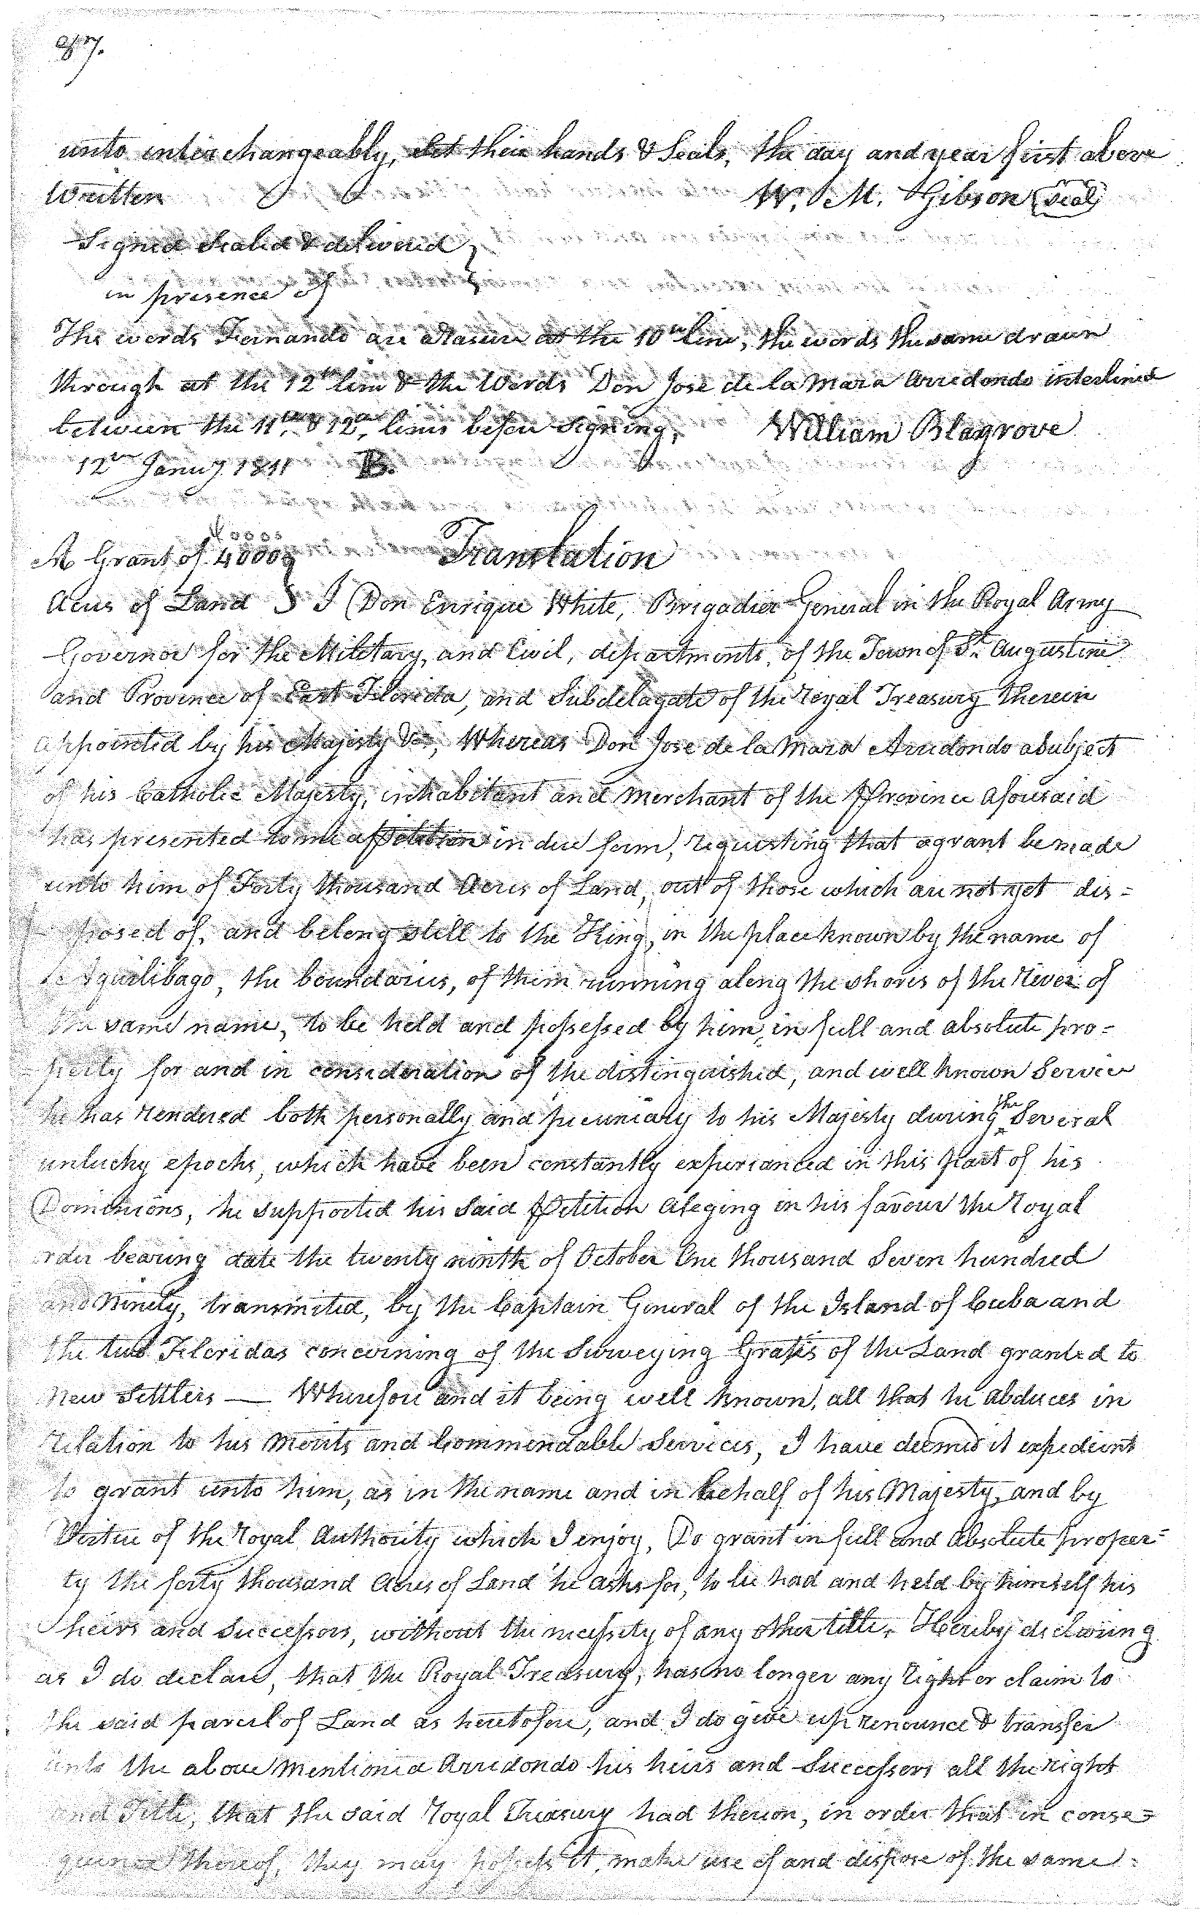 87.
unto interchangeably, set their hands & Seals, the day and year first above
Written W. M. Gibson (seal)
Signed Sealed & delivered }
in presence of
The words Fernando an erasure at the 10th line, the words the same drawn
through at the 12th line & the Words Don Jose de la Mara Arredondo interlined
between the 11th & 12th lines before signing, William Blagrove
12th Janury 1811 B.
40000
A Grant of 40000 } Translation
Acres of Land } I Don Enrique White, Brigadier General in the Royal Army
Governor for the Military, and Civil, departments, of the Town of St. Augustine
and Province of East Florida, and Subdelagate of the royal Treasury therein
appointed by his Majesty &c, Whereas Don Jose de la Mara Arredondo a subject
of his Catholic Majesty, inhabitant and merchant of the Province aforesaid
has presented to me a petition in due form, requesting that a grant be made
unto him of Forty thousand Acres of Land, out of those which are not yet dis=
posed of, and belong still to the King, in the place known by the name of
quilibago, the boundaries, of them running along the shores of the River of
the same name, to be held and possessed by him, in full and absolute pro=
perty for and in consideration of the distinguished, and well known Service
he has rendered both personally and pecuniary to his Majesty during the Several
unlucky epochs, which have been constantly experianced in this part of his
Dominions, he supported his said Petition aleging in his favour the royal
rder bearing date the twenty ninth of October One thousand Seven hundred
and Ninety, transmited, by the Captain General of the Island of Cuba and
the two Floridas concerning of the Surveying Gratis of the Land granted to
new Settlers — Wherefore and it being well known, all that he abduces in
relation to his merits and Commendable Services, I have deemed it expedient
to grant unto him, as in the name and in behalf of his Majesty, and by
Virtue of the royal Authority which I enjoy, Do grant in full and absolute proper=
ty the forty thousand Acres of Land he asks for, to be had and held by himself his
heirs and Successors, without the necessity of any other title, Hereby declaring
as I do declare, that the Royal Treasury, has no longer any right or claim to
the said parcel of Land as heretofore, and I do give up renounce & transfer
unto the above Mentioned Arredondo his heirs and Successors all the right
and Title, that the said royal Treasury had thereon, in order that in conse=
quence thereof, they may possess it, make use of and dispose of the same